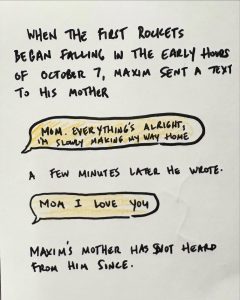 WHEN THE FIRST ROCKETS
BEGAN FALLING IN THE EARLY HOURS
OF OCTOBER 7, MAXIM SENT A TEXT
TO HIS MOTHER
MOM. EVERYTHING'S ALRIGHT,
I'M SLOWLY MAKING MY WAY HOME
A FEW MINUTES LATER HE WROTE.
MOM I LOVE YOU
MAXIM'S MOTHER HAS NOT HEARD
FROM HIM SINCE.